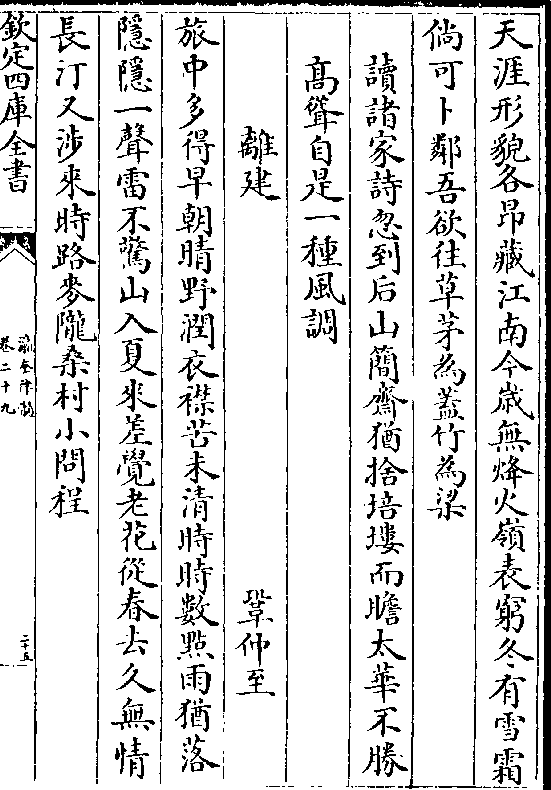 天涯形貌各昂藏江南今歲無烽火嶺表窮冬有雪霜
倘可卜鄰吾欲往草茅為蓋竹為梁
讀諸家詩忽到后山簡齋猶捨培塿而瞻太華不勝
高聳自是一種風調
離建　鞏仲至
旅中多得早朝晴野潤衣襟苦未清時時數點雨猶落
隱隱一聲雷不驚山入夏來差覺老花從春去久無情
長汀又涉來時路麥隴桑村小問程
欽定四庫全書
卷二十九
二十五